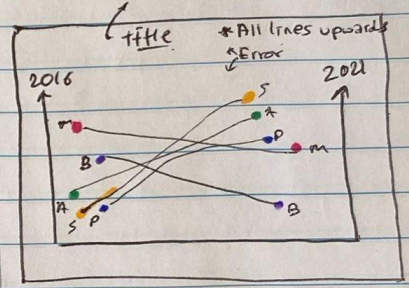 title
*All lines upwards
*Error
2016
2021
m
S
A
B
P
m
A
S
P
B